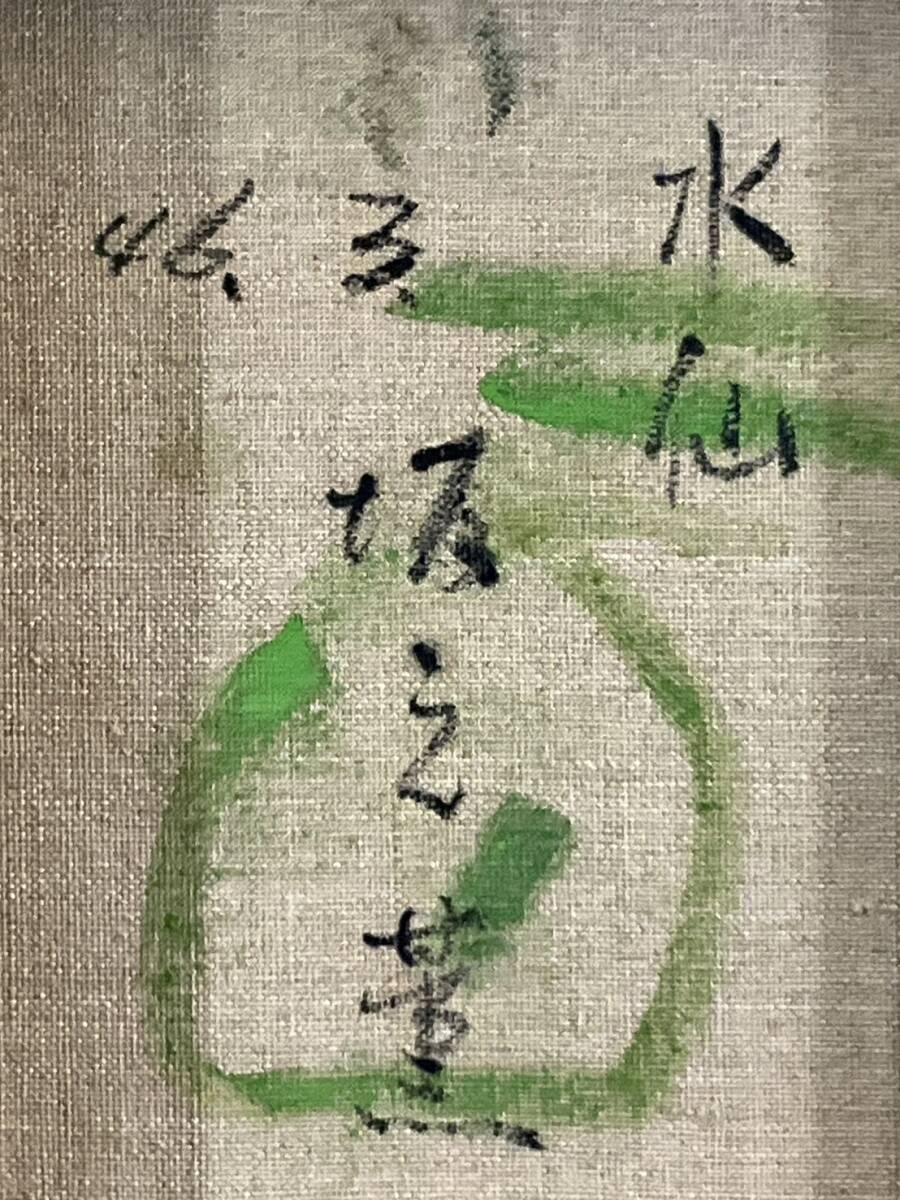 水仙
46.3.
坂之